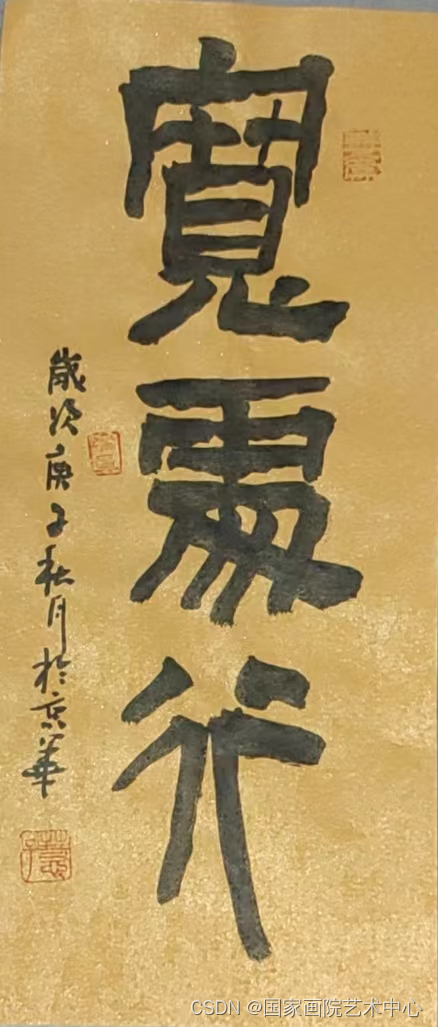 寬處行
歲次庚子秋月於京華
CSDN @国家画院艺术中心